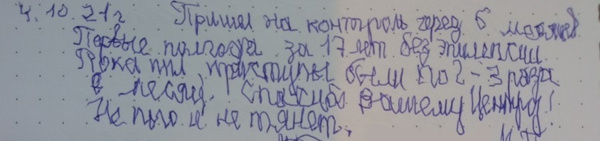 4.10.21г Пришел на контроль через 6 месяцев
Первые полгода за 17 лет без эпилепсии.
Пока пил приступы были по 2-3 раза
в месяц. Спасибо Вашему Центру!
Не пью и не тянет.